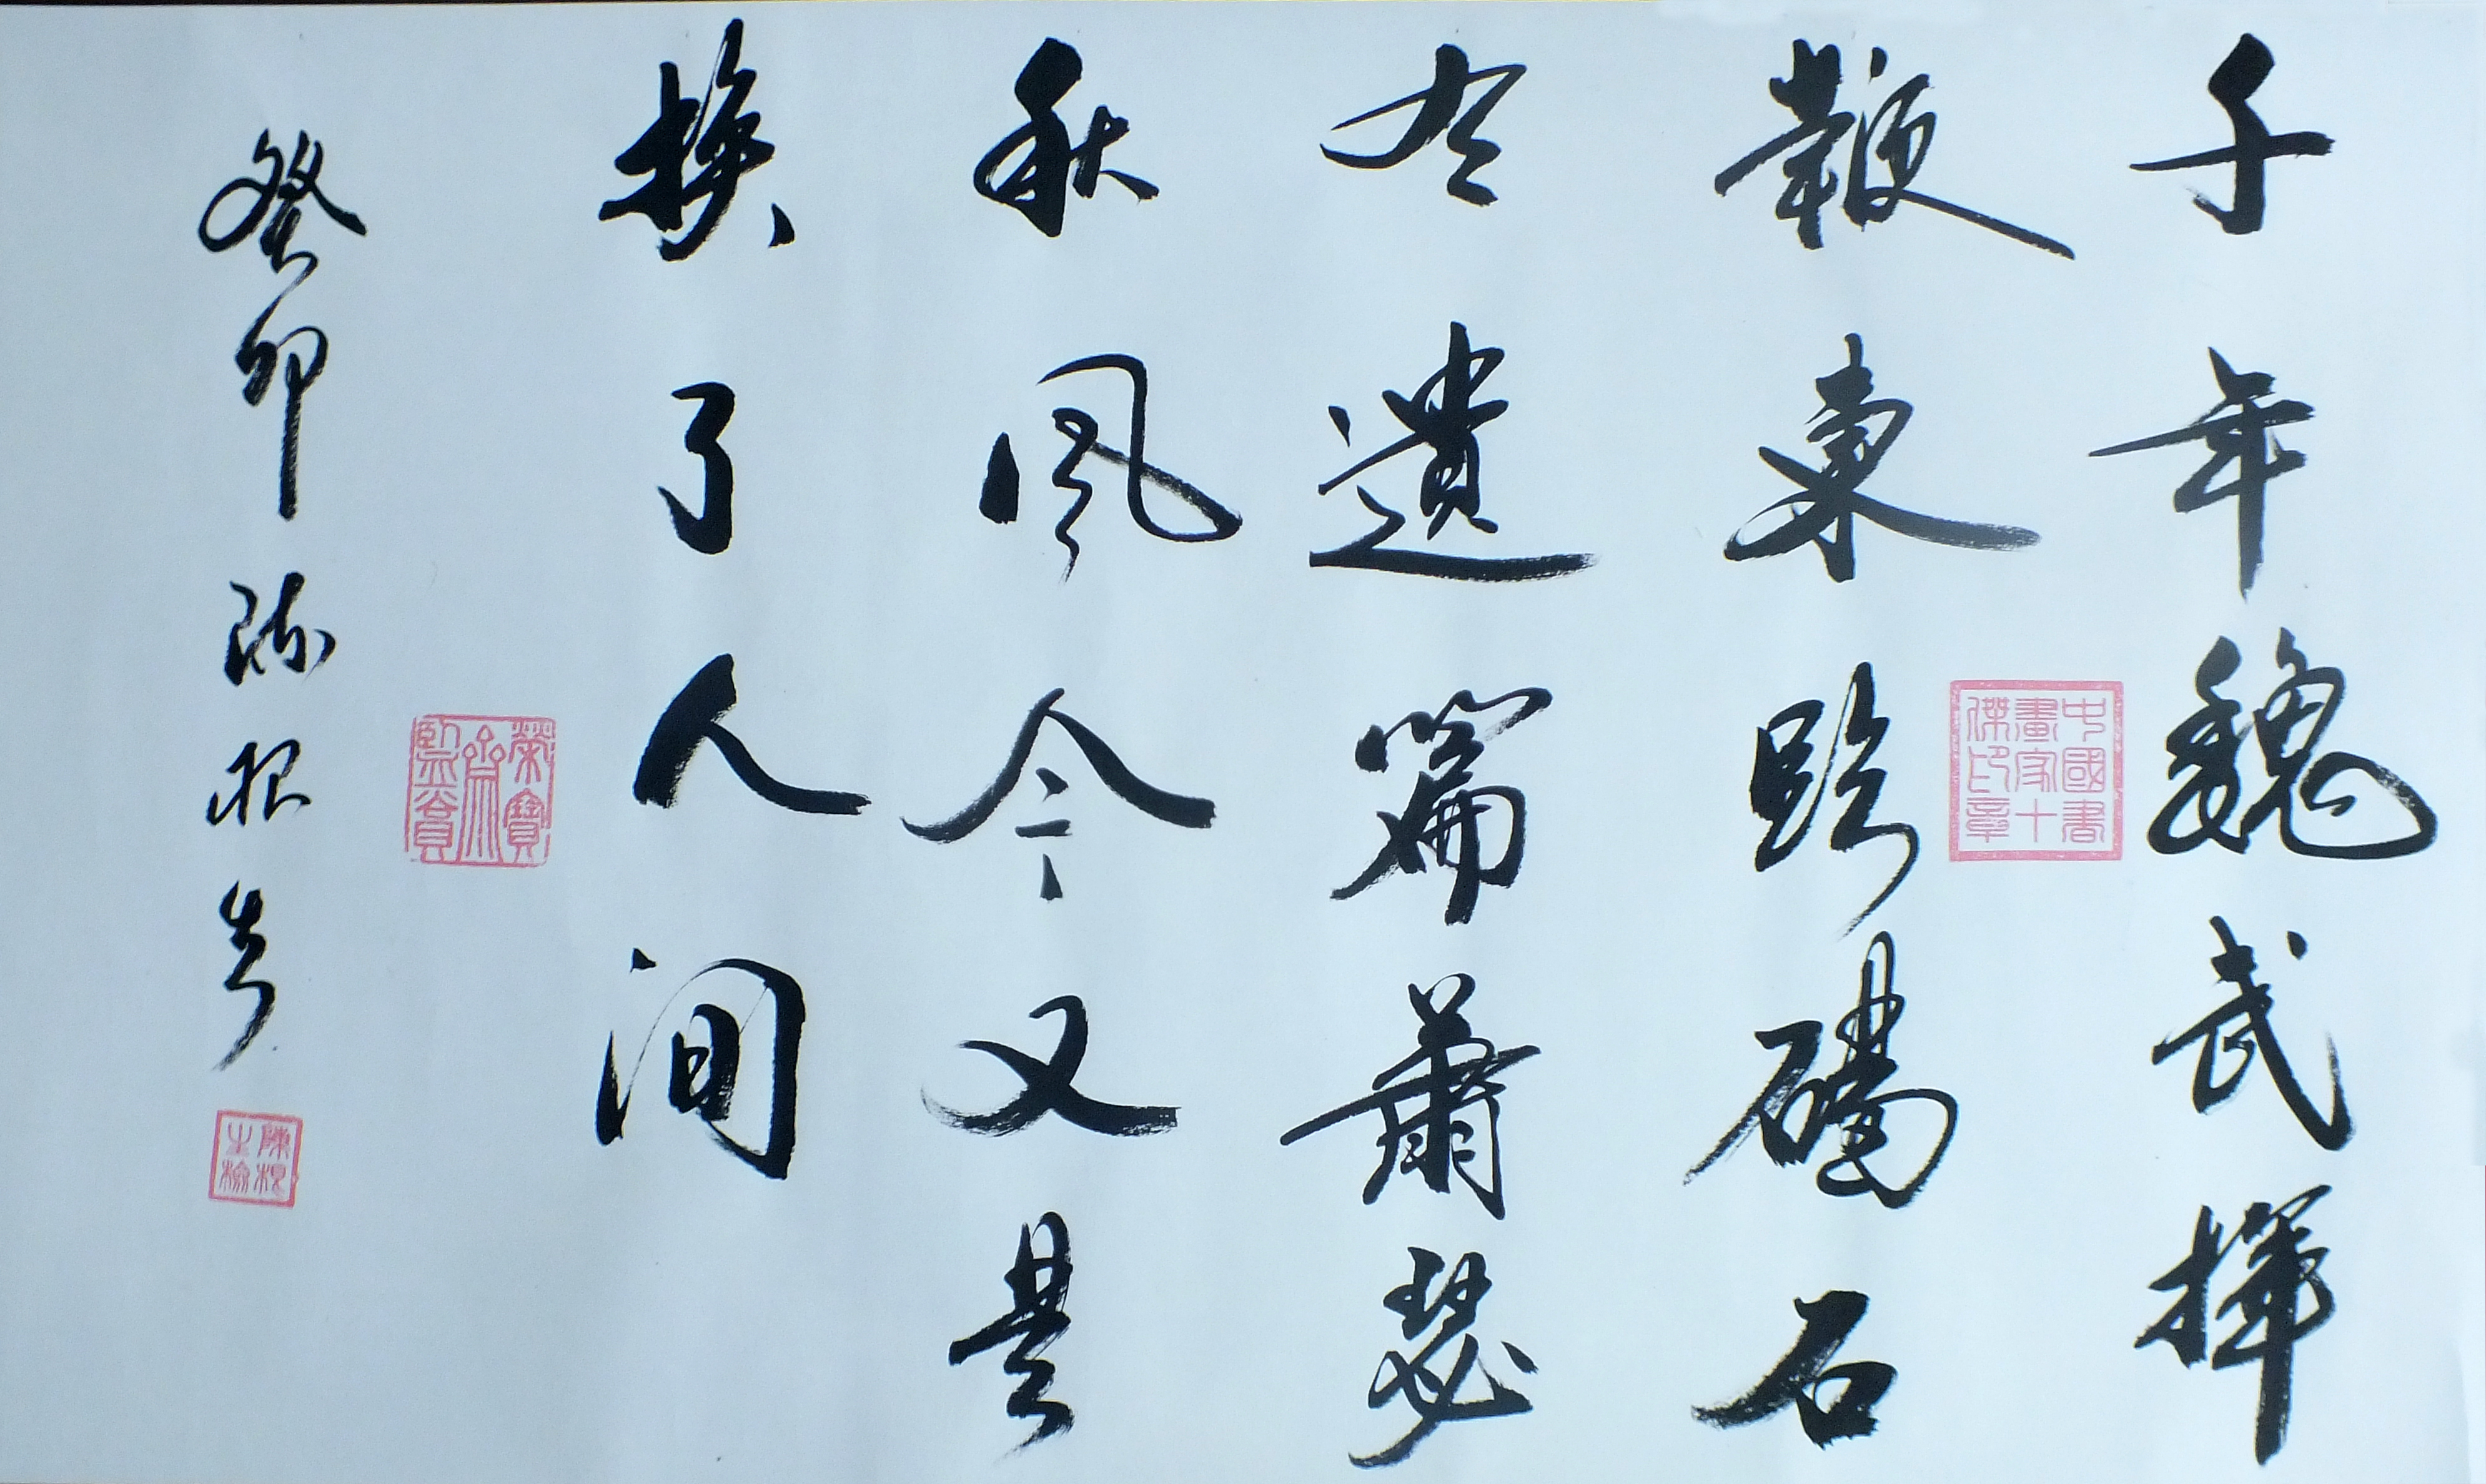 千年魏武揮
中國書
畫家十
傑印章
鞭東臨碣石
有遺篇蕭瑟
秋風今又是
換了人間
榮寶
齋
監賞
癸卯陳根書
陳根